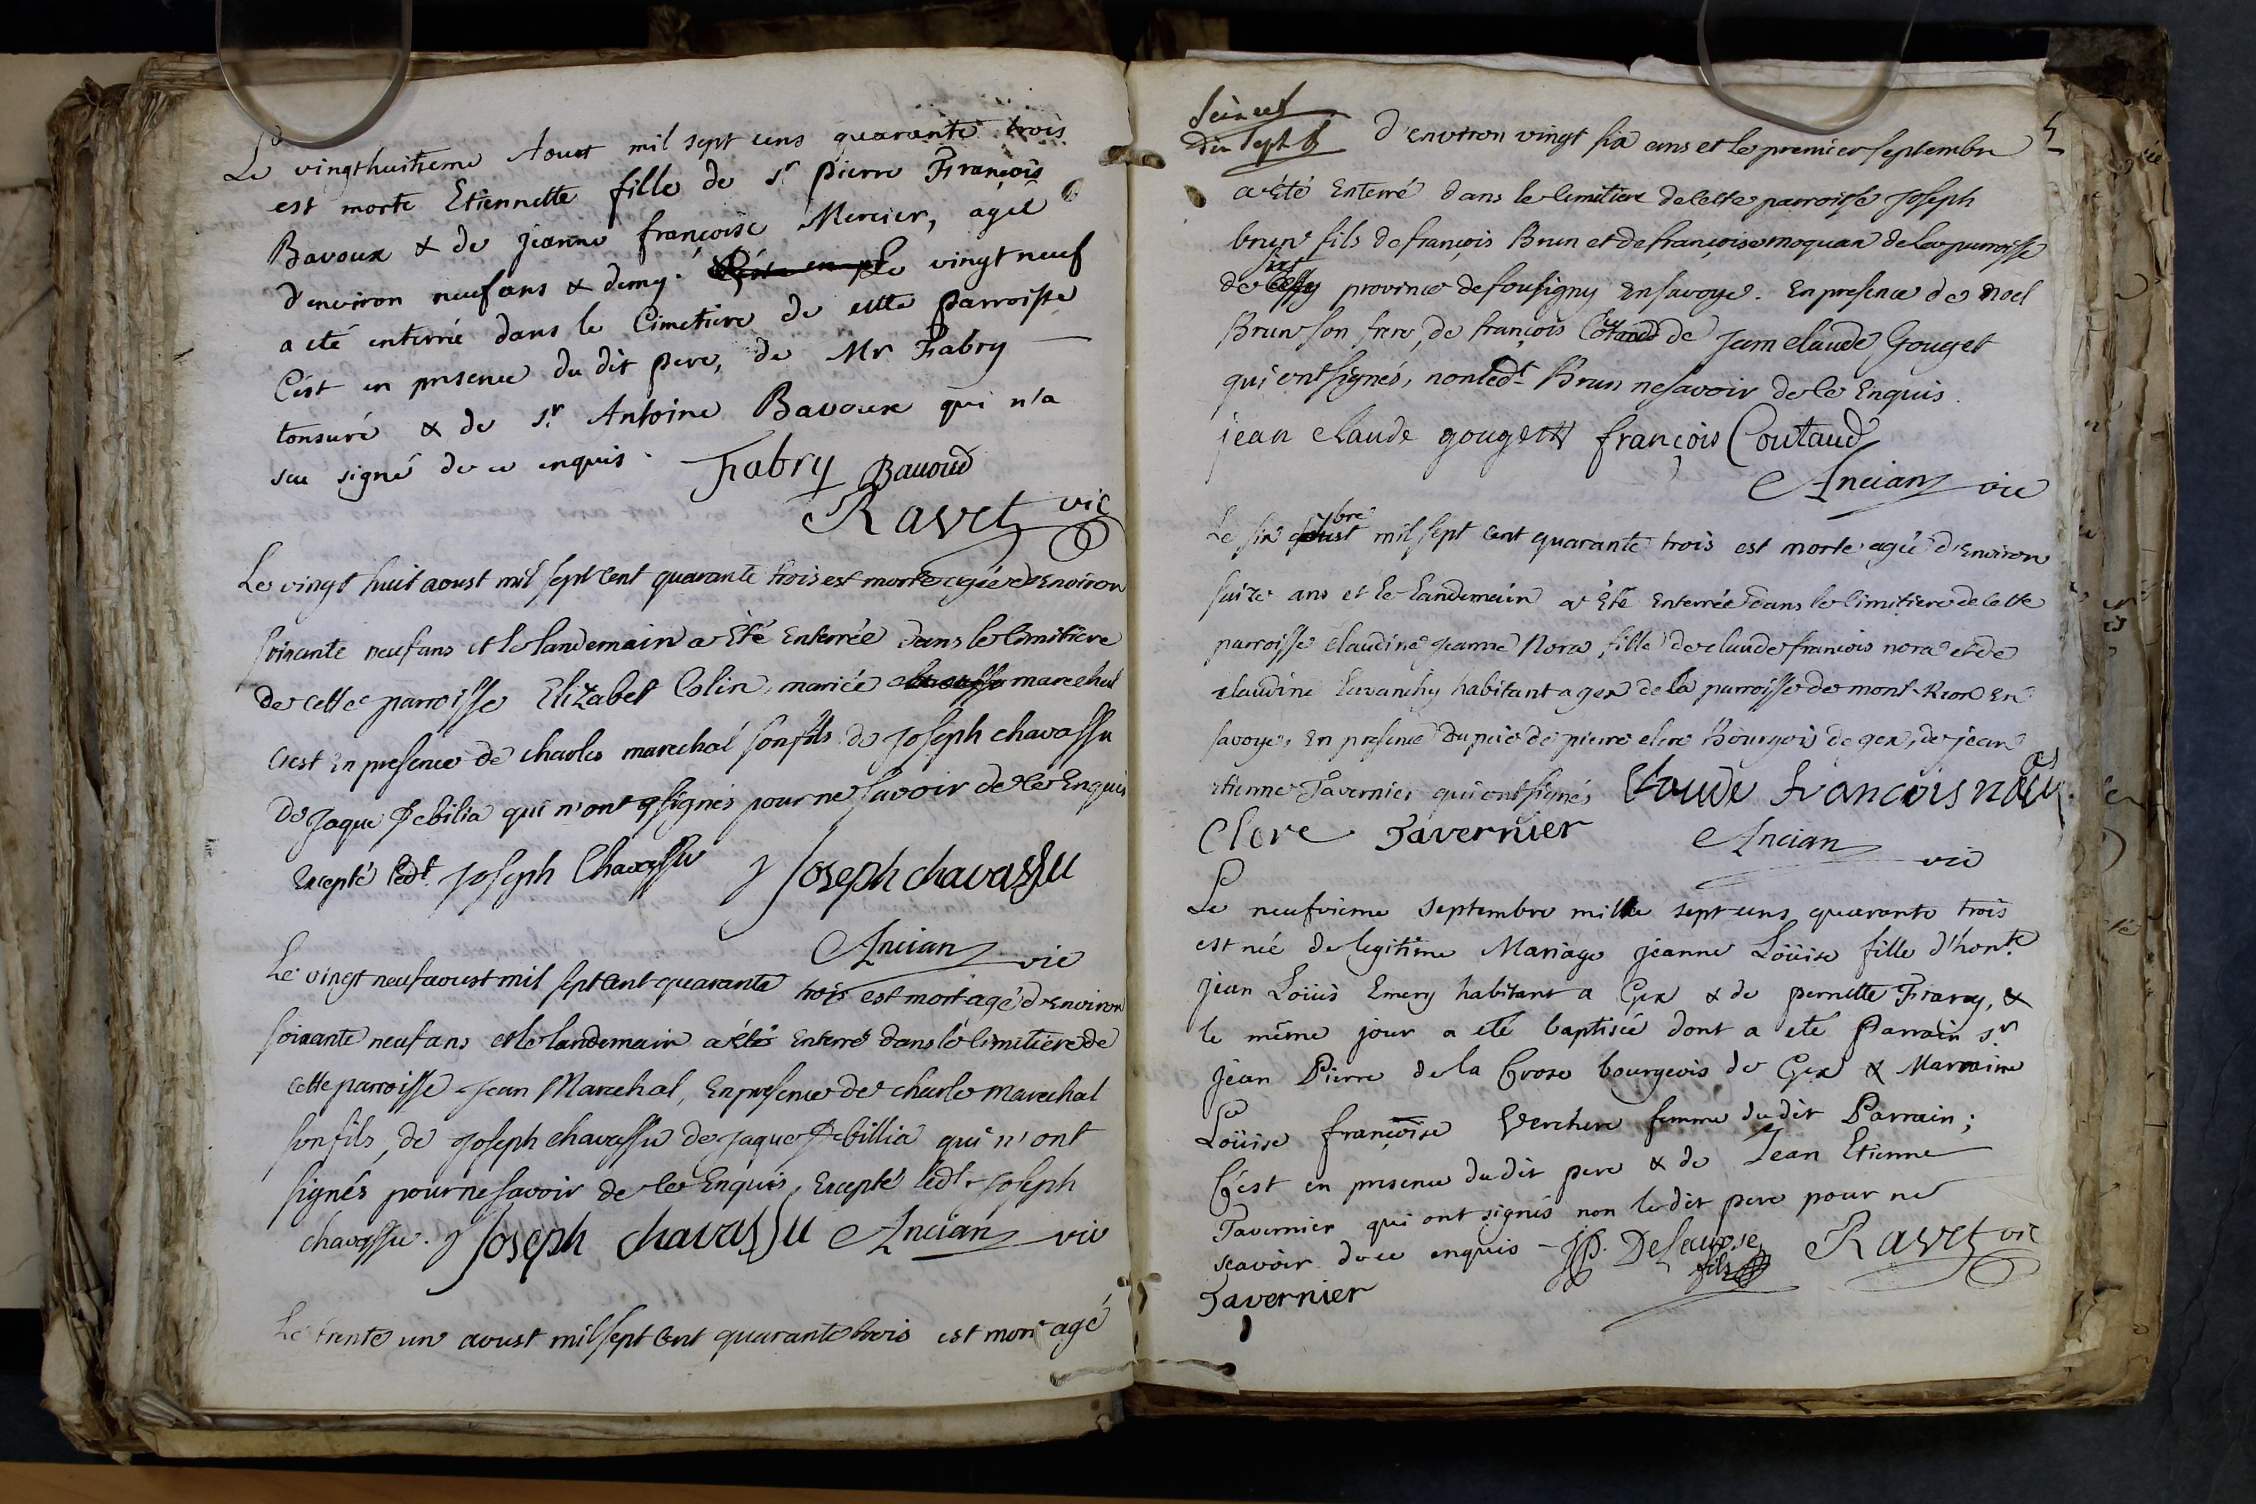 Le vingthuitieme Aoust mil sept cens quarante trois
est morte Etiennette fille de Sr pierre François
Bavoux & de jeanne françoise Mercier, agée
d'environ neuf ans & demy. le vingt neuf
a eté enterré dans le Cimetiere de cette Parroisse
C'est en presence du dit pere, de Mr Fabry
tonsuré & de Sr. Antoine Bavoux qui n'a
scu signé de ce enquis.
Fabry Bavoud
Ravet vic
Le vingt huit aoust mil sept Cent quarante trois est morte agée d'Environ
soixante neuf ans et le landemain a Eté Enterrée dans le Cimitiere
de cette parroisse Elizabet Colin, mariée marechal
C'est En presence de charles marechal son fils de Joseph chavassu
De Jaque Debilia qui n'ont signés pour ne savoir de ce Enquis
Excepté ledt. Joseph Chavassu
Joseph chavassu
Ancian vic
Le vingt neuf aoust mil sept Cent quarante trois est mort agé d'Environ
soixante neuf ans et le landemain a été Enterré dans le Cimitiere de
cette parroisse Jean Marechal, En presence de charle marechal
son fils, de Joseph chavassu de Jaque Debillia qui n'ont
signés pour ne savoir de ce Enquis, Excepté ledt. Joseph
chavassu. Joseph chavassu Ancian vic
Le trente un aoust mil sept Cent quarante trois est mort agé
dix sept
d'environ vingt six ans et le premier septembre
a été Enterré dans le Cimitiere de Cette parroisse Joseph
brun fils de françois Brun et de françoise moquan de la parroisse
de province de fousigny En savoye. En presence de noel
Brun son frere, de françois de Jean claude Gouget
qui ont signés, non ledt. Brun ne savoir de ce Enquis.
jean claude gouget françois Coutaud
Ancian vic
Le six 7bre mil sept Cent quarante trois est morte agée d'Environ
saize ans et le landemain a Eté Enterrée dans le Cimitiere de Cette
parroisse claudine jeanne Nora fille de claude françois nora et de
claudine Lavanchy habitant a gex de la parroisse de mont-Rion En
savoye, En presence du pere de pierre clere Bourgois de gex, de jean
etienne Tavernier qui ont signés Claude francois
Clere Tavernier Ancian vic
Le neufvieme Septembre mille sept cens quarante trois
est née de legitime Mariage jeanne Loüise fille d'honte.
jean Loüis Emery habitant a Gex & de pernette Frary, &
le même jour a eté baptisée dont a eté Parrain Sr.
jean Pierre de la Crose bourgeois de Gex & Marraine
Loüise françoise Verchere femme du dit Parrain;
C'est en presence du dit pere & de Jean Etienne
Tavernier qui ont signés non le dit pere pour ne
scavoir de ce enquis - JP. Delacrose fils Ravet vic
Tavernier